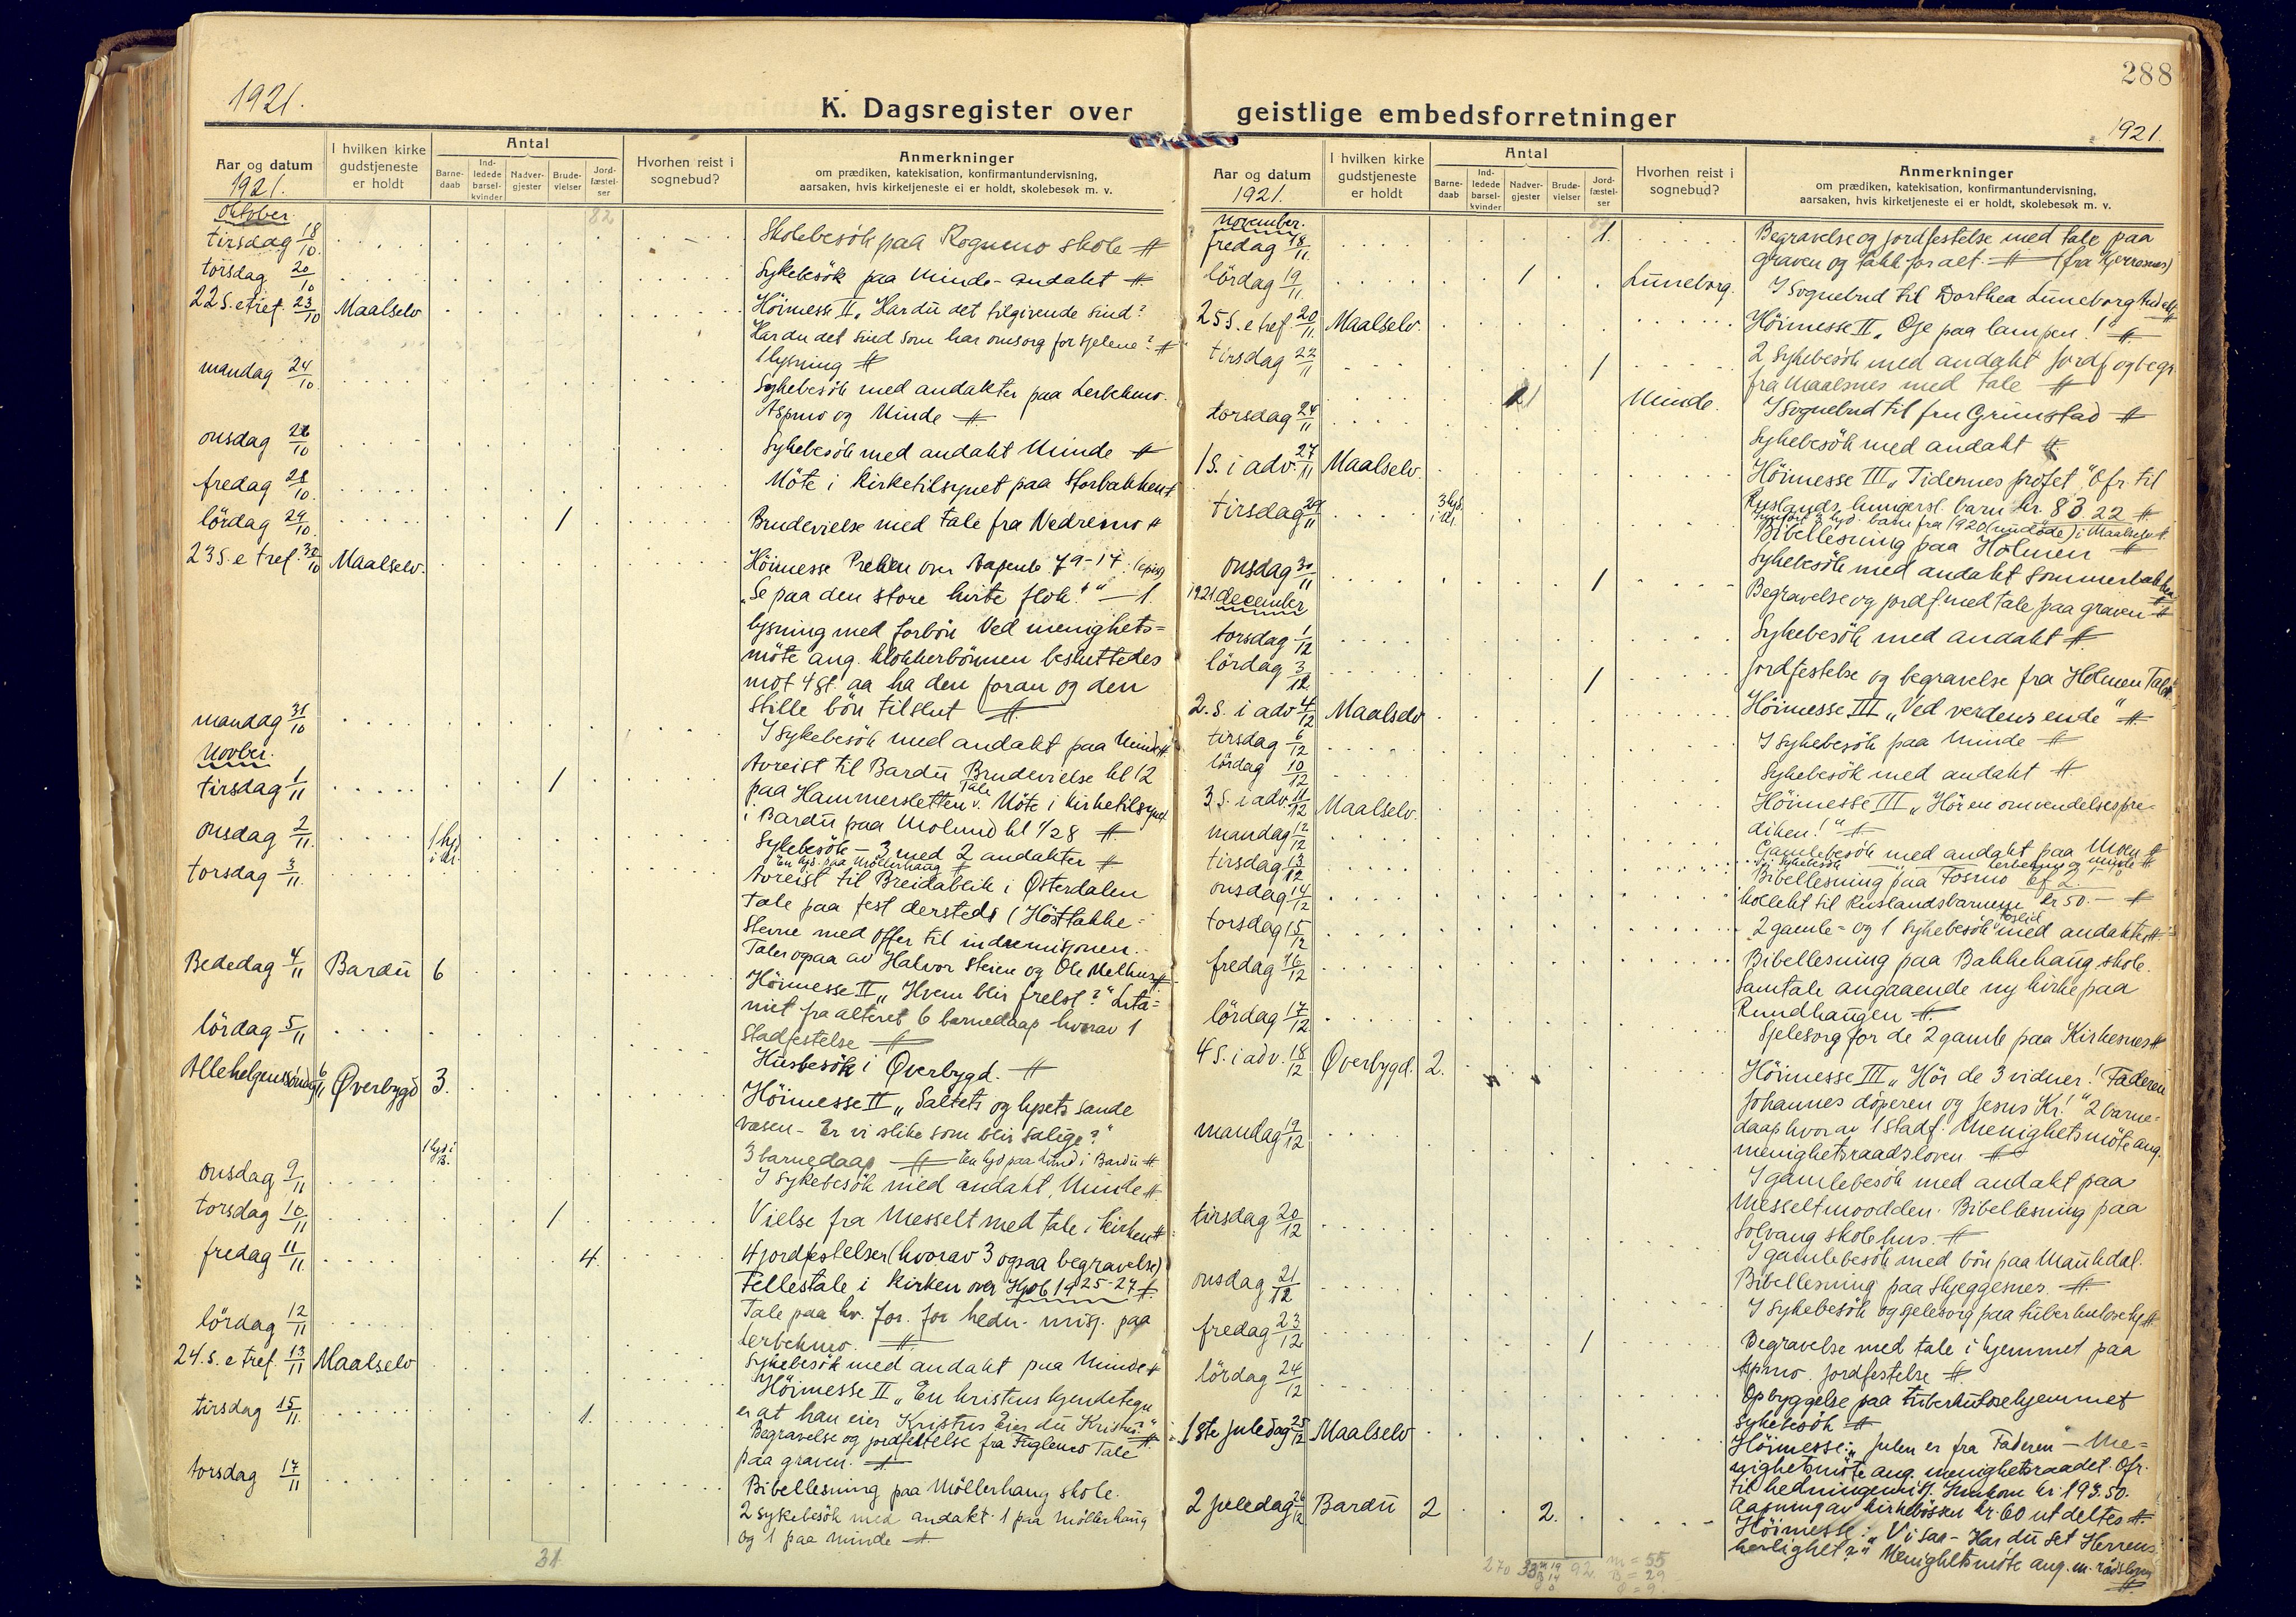 1921.
K. Dagsregister over
Aar og datum
1921.
I hvilken kirke
gudstjeneste
er holdt
Antal
Barne-
daab
Ind-
ledede
barsel-
kvinder
Nadver-
gjester
Brude-
vielser
Jord-
fæstel-
ser
Hvorhen reist i
sognebud?
Anmerkninger
om prædiken, katekisation, konfirmantundervisning,
aarsaken, hvis kirketjeneste ei er holdt, skolebesøk m. v.
82
oktober.
tirsdag 18/10. Skolebesök paa Rognmo skole #
torsdag 20/10 Sykebesök paa Minde - andakt #
22 S. e tref. 23/10 Maalselv Höimesse II „Har du det tilgivende sind?
Har du det sind som har omsorg for sjelene? #
1 lysning #
mandag 24/10. Sykebesök med andakter paa Lerbekmo.
Aspmo og Minde #
onsdag 26/10 Sykebesök med andakt Minde #
fredag 28/10. Möte i Kirketilsynet paa Storbakken #
lördag 29/10. 1 Brudevielse med tale fra Nedremo #
23 S. e tref. 30/10 Maalselv. Höimesse Preken over Aapenb 7 9-17. (epist)
„Se paa den store hvite flok!" — 1.
lysning med forbön Ved menighets=
möte ang. klokkerbönnen besluttedes
mot 4 st. aa ha den foran og den
stille bön tilslut #
mandag 31/10 1 sykebesök med andakt paa Minde #
Novber.
tirsdag 1/11 1 Avreist til Bardu Brudevielse kl 12
paa Hammersletten Tale v. Möte i kirketilsynet
i Bardu paa Molund kl 1/2 8 #
onsdag 2/11. 1 hjd. i Kl. Sykebesök - 3 med 2 andakter #
En hjd. paa Möllerhaug #
torsdag 3/11. Avreist til Breidablik i Østerdalen
Tale paa fest dersteds (Hösttakke=
stevne med offer til indremisjonen.
Taler ogsaa av Halvor Steien og Ole Melhus #
Bededag 4/11 Bardu 6 Höimesse II „Hvem blir frelst?" Lita=
niet fra alteret 6 barnedaap - hvorav 1
stadfestelse #
lördag 5/11 Husbesök i Øverbygd. #
Allehelgensöndag 6/11 Øverbygd 3. Höimesse II „Saltets og lysets sande
væsen - Er vi slike som blir salige?"
3 barnedaap # En hjd paa Lund i Bardu #
1 hjd i B.
onsdag 9/11 1 sykebesök med andakt, Minde #
torsdag 10/11 1 Vielse fra Messelt med tale i kirken #
fredag 11/11. 4. 4 jordfestelser (hvorav 3 ogsaa begravelse)
Fellestale i kirken over Job 19 25-27 #
lördag 12/11 Tale paa kv. for. for hedn. misj. paa
Lerbekmo. #
Sykebesök med andakt paa Minde #
24. S. e tref. 13/11 Maalselv Höimesse II „En kristens kjendetegn
er at han eier Kristus Eier du Kristus?" #
tirsdag 15/11. 1. Begravelse og jordfestelse fra Fuglemo Tale
paa graven. #
torsdag 17/11 Bibellesning paa Möllerhaug skole.
2 sykebesök med andakt. 1 paa Möllerhaug
og 1 paa Minde #
31.
288
geistlige embedsforretninger
1921.
Aar og datum
1921.
I hvilken kirke
gudstjeneste
er holdt
Antal
Barne-
daab
Ind-
ledede
barsel-
kvinder
Nadver-
gjester
Brude-
vielser
Jord-
fæstel-
ser
Hvorhen reist i
sognebud?
Anmerkninger
om prædiken, katekisation, konfirmantundervisning,
aarsaken, hvis kirketjeneste ei er holdt, skolebesøk m. v.
November.
fredag 18/11. 1. Begravelse og jordfestelse med tale paa
graven og takk for alt. # (fra Kjerresnes)
lördag 19/11. 1 Luneborg. I sognebud til Dorthea Luneborg Andakt #
25 S. e tref. 20/11. Maalselv. Höimesse II „Olje paa lampen!" #
tirsdag 22/11 1 2 sykebesök med andakt Jordf og begr
fra Maalsnes med tale #
1 Minde. I sognebud til fru Grimstad #
torsdag 24/11 Sykebesök med andakt #
1 S. i adv. 27/11 Maalselv. Höimesse III „Tidernes profet". Ofr. til
Ruslands hungersl. barn kr. 83.22 #
tirsdag 29/11 3 hjd. i Kl. 3 hjd. barn fra 1920 (undöde) i Maalselv #
Bibellesning paa Holmen #
onsdag 30/11 1 Sykebesök med andakt Sommerbakken #
Begravelse og jordf med tale paa graven #
1921 december
torsdag 1/12 Sykebesök med andakt #
lördag 3/12. 1 Jordfestelse og begravelse fra Holmen Tale #
2. S. i adv. 4/12 Maalselv Höimesse III „Ved verdens ende" #
tirsdag 6/12 1 sykebesök paa Minde #
lördag 10/12 Sykebesök med andakt #
3. S. i adv. 11/12 Maalselv. Höimesse III „Hör en omvendelsespre-
diken!" #
mandag 12/12 Gamlebesök med andakt paa Moen #
tirsdag 13/12 sykebesök Lerbekmo og Minde #
onsdag 14/12 Bibellesning paa Fosmo
kollekt til Ruslandsbarnene kr 50.— #
torsdag 15/12 2 gamle= og 1 sykebesök Foslid med andakter #
fredag 16/12 Bibellesning paa Bakkehaug skole.
Samtale angaaende ny kirke paa
Rundhaugen #
lördag 17/12 Sjelesorg for de 2 gamle paa Kirkesnes #
4 S. i adv. 18/12 Øverbygd. 2. Höimesse III „Hör de 3 vidner! Faderen
Johannes döperen og Jesus Kr!" 2 barne=
daap hvorav 1 stadf. Menighetsmöte ang.
menighetsraadsloven #
mandag 19/12 1 gamlebesök med andakt paa
Messeltmoodden. Bibellesning paa
Solvang skolehus. #
tirsdag 20/12 1 gamlebesök med bön paa Maukdal.
Bibellesning paa Skjeggesnes. #
onsdag 21/12 1 sykebesök og sjelesorg paa tuberkulosehj #
fredag 23/12 1 Begravelse med tale i hjemmet paa
Aspmo. Jordfestelse #
lördag 24/12 Opbyggelse paa tuberkulosehjemmet
Sykebesök #
1ste juledag 25/12 Maalselv Höimesse: „Julen er fra Faderen" — Me=
nighetsmöte ang. menighetsraadet. Ofr.
til hedningemisj. Innkom kr. 193.50.
Aapning av kirkebössen kr. 60 utdeltes #
2 juledag 26/12 Bardu 2 2. Höimesse: „Vi saa - Har du set Herrens
herlighet?" Menighetsmöte ang. m. rådsloven #
270 33 m 19 B 14 92. m = 55
B = 29
Ø = 9.